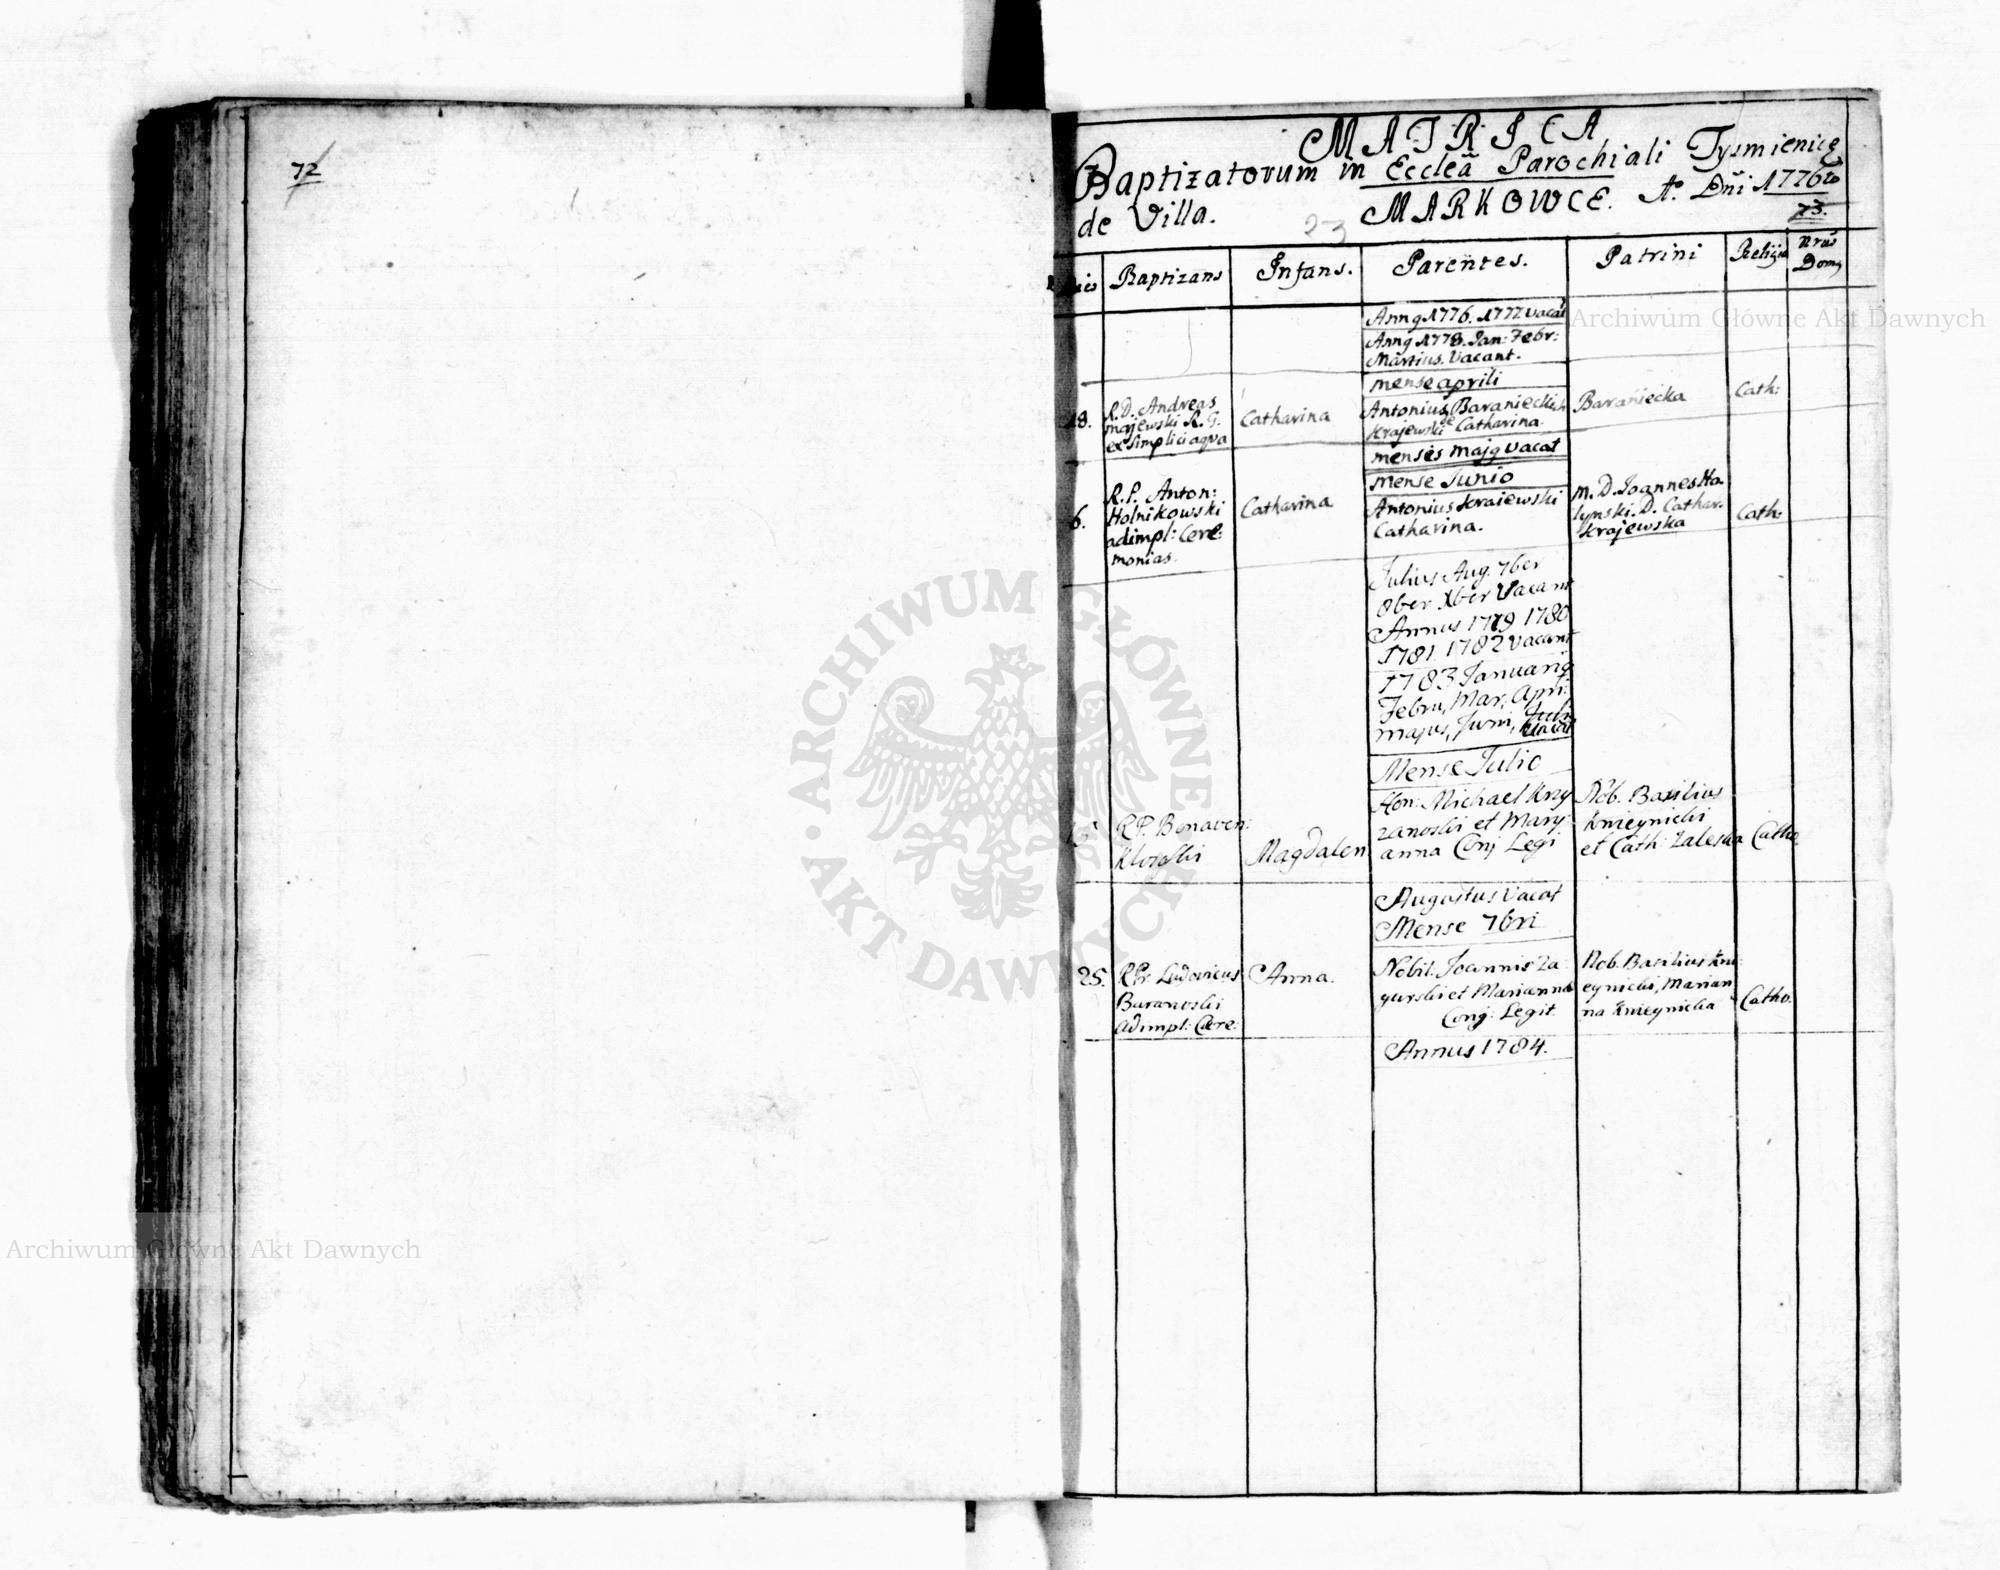 72
MATRICA
Baptizatorum in Ecclea Parochiali Tysmienice
de Villa. MARKOWCE. Ao. Dni 1776to
23
73.
Dies Baptizans Infans. Parentes. Patrini Religio Nrus Domq
Annq 1776. 1777. vacat
Annq 1778. Jan: Febr:
Martius. vacant.
mense aprili
18.
R.D. Andreas
majewski R. G.
ex simplici aqva
Catharina
Antonius Baraniecki
Krajewski de Catharina.
Baraniecka
Cath:
mensis majq vacat
mense Junio
6.
R.P. Anton:
Holnikowski
adimpl: Cere:
monias.
Catharina
Antonius Kraiewski
Catharina.
M. D. Joannes Ho.
lynski. D. Cathar.
Krajewska
Cath:
Julius Aug. 7ber
8ber Xber Vacant
Annus 1779 1780
1781. 1782 vacant
1783 Januariq
Febru, Mar: Apri:
majus, Juni,
Mense Julio
15
R.P. Bonaven:
Magdalen
Hon: Michael Krzy
zanoski et Mary:
anna Conj Legi
Nob. Basilius
Knieynicki
et Cath: Zaleska
Catho.
Augustus Vacat
Mense 7bri
25.
R.Pr. Ludovicus
Baranoski
adimpl: Cere:
Anna.
Nobil. Joannis Za
gurski et Marianna
Conj: Legit.
Nob. Basilius Kni:
eynicki, Marian
na Knieynicka
Catho.
Annus 1784.
Archiwum Główne Akt Dawnych
ARCHIWUM GŁÓWNE AKT DAWNYCH
Archiwum Główne Akt Dawnych